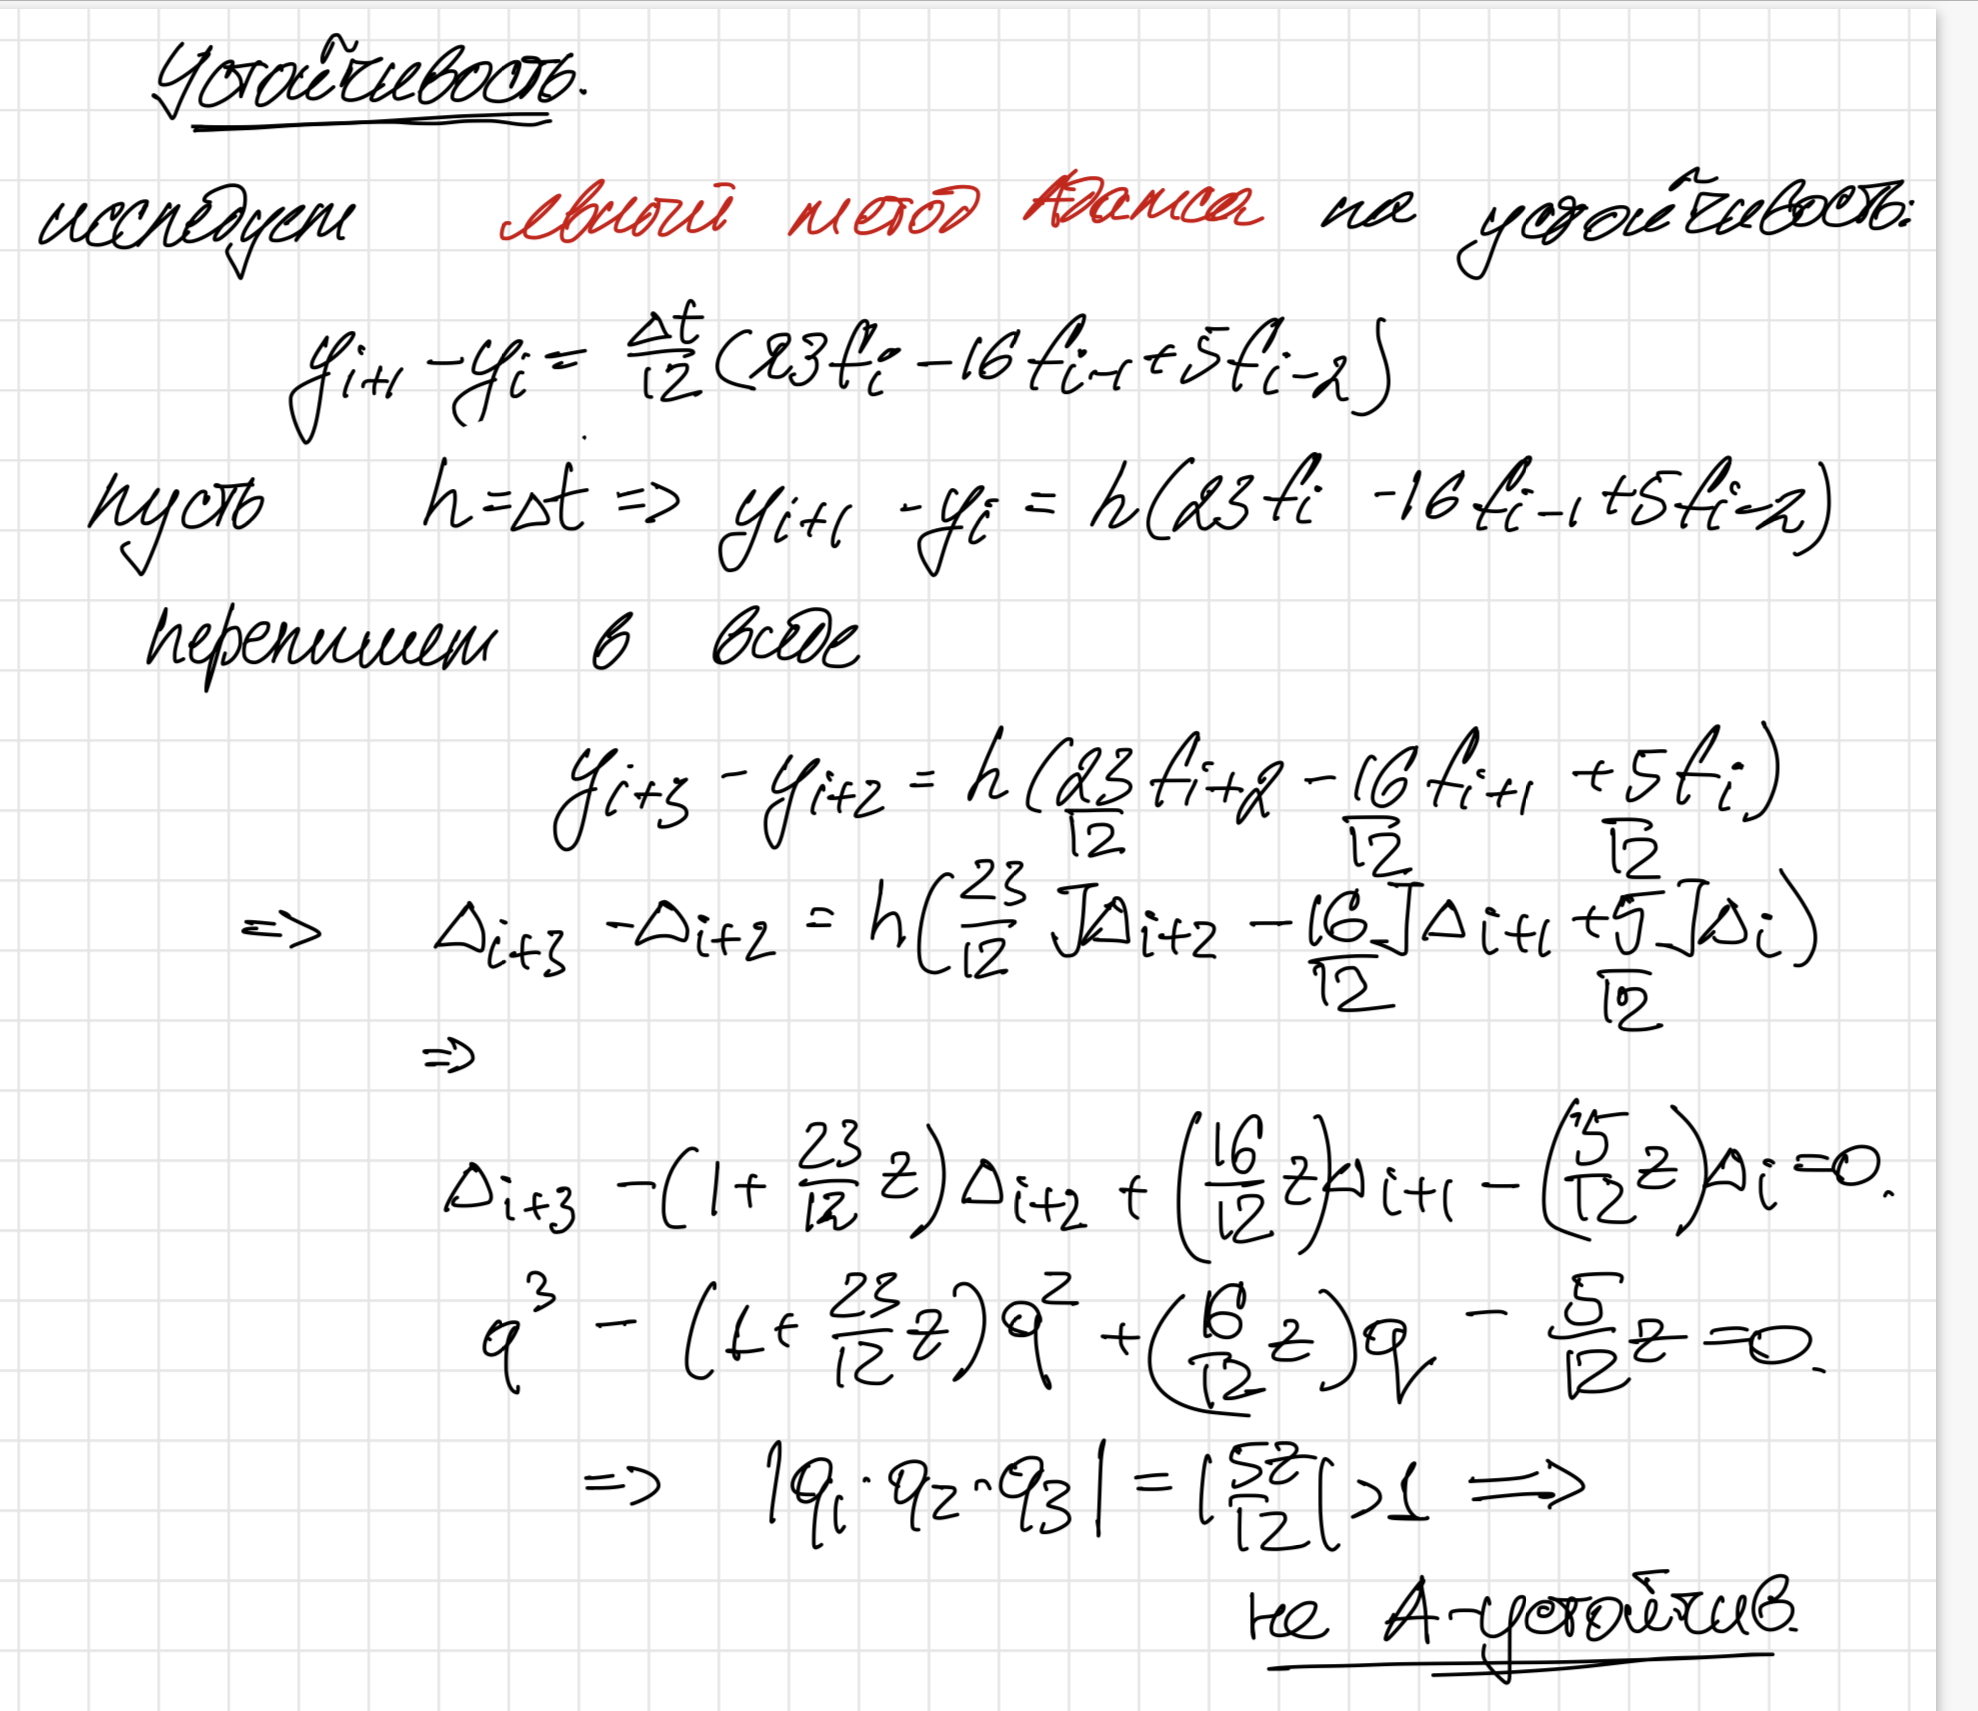 Устойчивость.
исследуем явный метод Адамса на устойчивость:
y_{i+1} - y_i = Δt/12 (23f_i - 16f_{i-1} + 5f_{i-2})
пусть h = Δt => y_{i+1} - y_i = h(23f_i - 16f_{i-1} + 5f_{i-2})
перепишем в виде
y_{i+3} - y_{i+2} = h(23/12 f_{i+2} - 16/12 f_{i+1} + 5/12 f_i)
=> Δ_{i+3} - Δ_{i+2} = h(23/12 JΔ_{i+2} - 16/12 JΔ_{i+1} + 5/12 JΔ_i)
=>
Δ_{i+3} - (1 + 23/12 z)Δ_{i+2} + (16/12 z)Δ_{i+1} - (5/12 z)Δ_i = 0.
q^3 - (1 + 23/12 z)q^2 + (16/12 z)q - 5/12 z = 0.
=> |q_1 · q_2 · q_3| = |5z/12| > 1 =>
не А-устойчив.